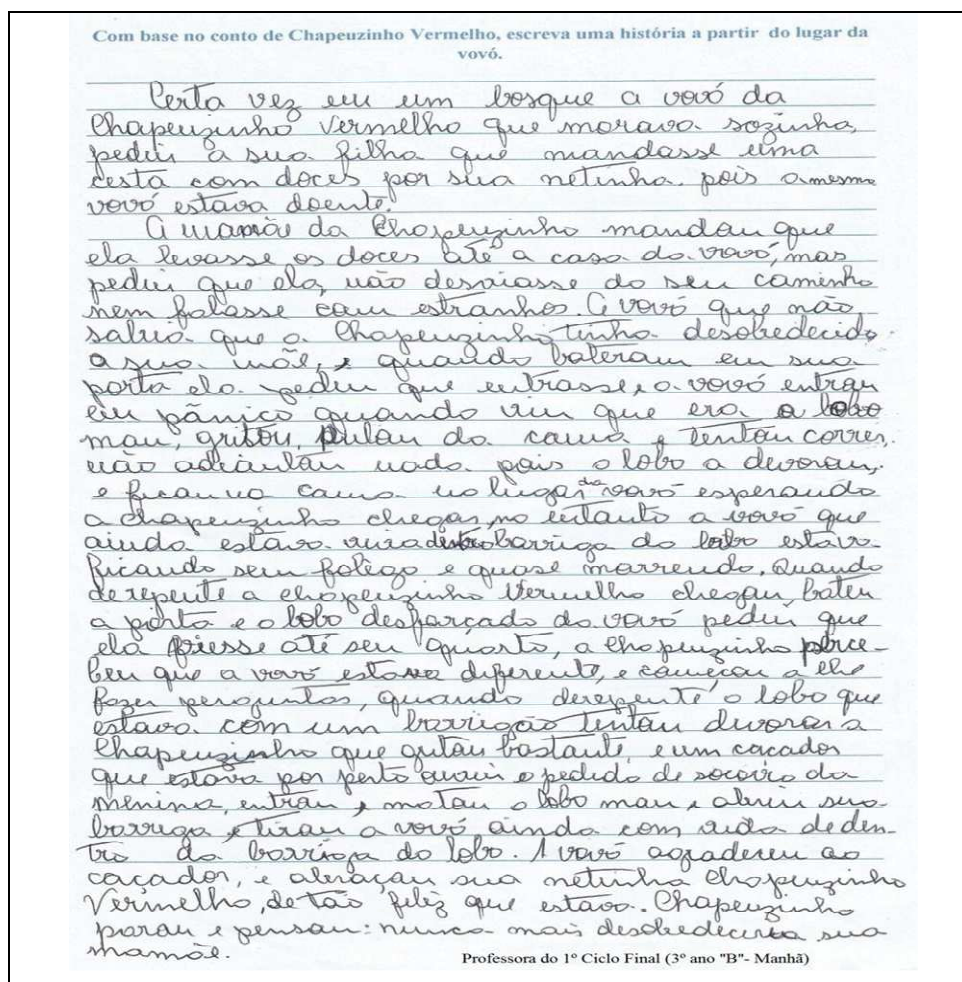 Com base no conto de Chapeuzinho Vermelho, escreva uma história a partir do lugar da
vovó.
Certa vez em um bosque a vovó da
Chapeuzinho Vermelho que morava sozinha,
pediu a sua filha que mandasse uma
cesta com doces por sua netinha, pois a mesma
vovó estava doente.
A mamãe da Chapeuzinho mandou que
ela levasse os doces até a casa da vovó, mas
pediu que ela não desviasse do seu caminho
nem falasse com estranhos. A vovó que não
sabia que a Chapeuzinho tinha desobedecido
a sua mãe, e quando bateram em sua
porta ela pediu que entrasse, a vovó entrou
em pânico quando viu que era o lobo
mau, gritou, pulou da cama e tentou correr,
não adiantou nada pois o lobo a devorou,
e ficou na cama no lugar da vovó esperando
a chapeuzinho chegar, no entanto a vovó que
ainda estava viva dentro barriga do lobo estava
ficando sem folêgo e quase morrendo. Quando
derepente a chapeuzinho Vermelho chegou, bateu
a porta e o lobo desfarçado da vovó pediu que
ela fosse até seu quarto, a Chapeuzinho perce-
beu que a vovó estava diferente, e começou a lhe
fazer perguntas, quando derepente o lobo que
estava com um barrigão tentou devorar a
Chapeuzinho que gritou bastante, e um caçador
que estava por perto ouviu o pedido de socorro da
menina, entrou, e matou o lobo mau e abriu sua
barriga, e tirou a vovó ainda com vida de den-
tro da barriga do lobo. A vovó agradeceu ao
caçador, e abraçou sua netinha chapeuzinho
Vermelho, de tão feliz que estava. Chapeuzinho
parou e pensou: nunca mais desobedeceria sua
mamãe.
Professora do 1º Ciclo Final (3º ano "B"- Manhã)